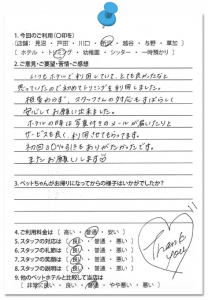 1.今回のご利用(○印を)
(店舗:見沼・戸田・川口・所沢・越谷・与野・草加)
(ホテル・トリミング・幼稚園・シッター・一時預かり)
2.ご意見・ご要望・苦情・ご感想
いつもホテルで利用していて、とても良かったなと
思っていたので初めてトリミングを利用しました。
相変わらず、スタッフさんの対応もすばらしく
安心してお願い出来ました。
ホテルの時は写真付きのメールが届いたりと
サービスも良く、利用させてもらってます。
初回30%引きもありがたかったです。
またお願いします
3.ペットちゃんがお帰りになってからの様子はいかがでしたか?
4.ご利用料金は(高い・普通・安い)
5.スタッフの対応は(良い・普通・悪い)
6.スタッフの礼節は(良い・普通・悪い)
7.スタッフの笑顔は(良い・普通・悪い)
8.スタッフの説明は(良い・普通・悪い)
9.他のペットホテルと比較して当店は
(非常に良い・良い・普通・やや悪い・悪い)
Thank you